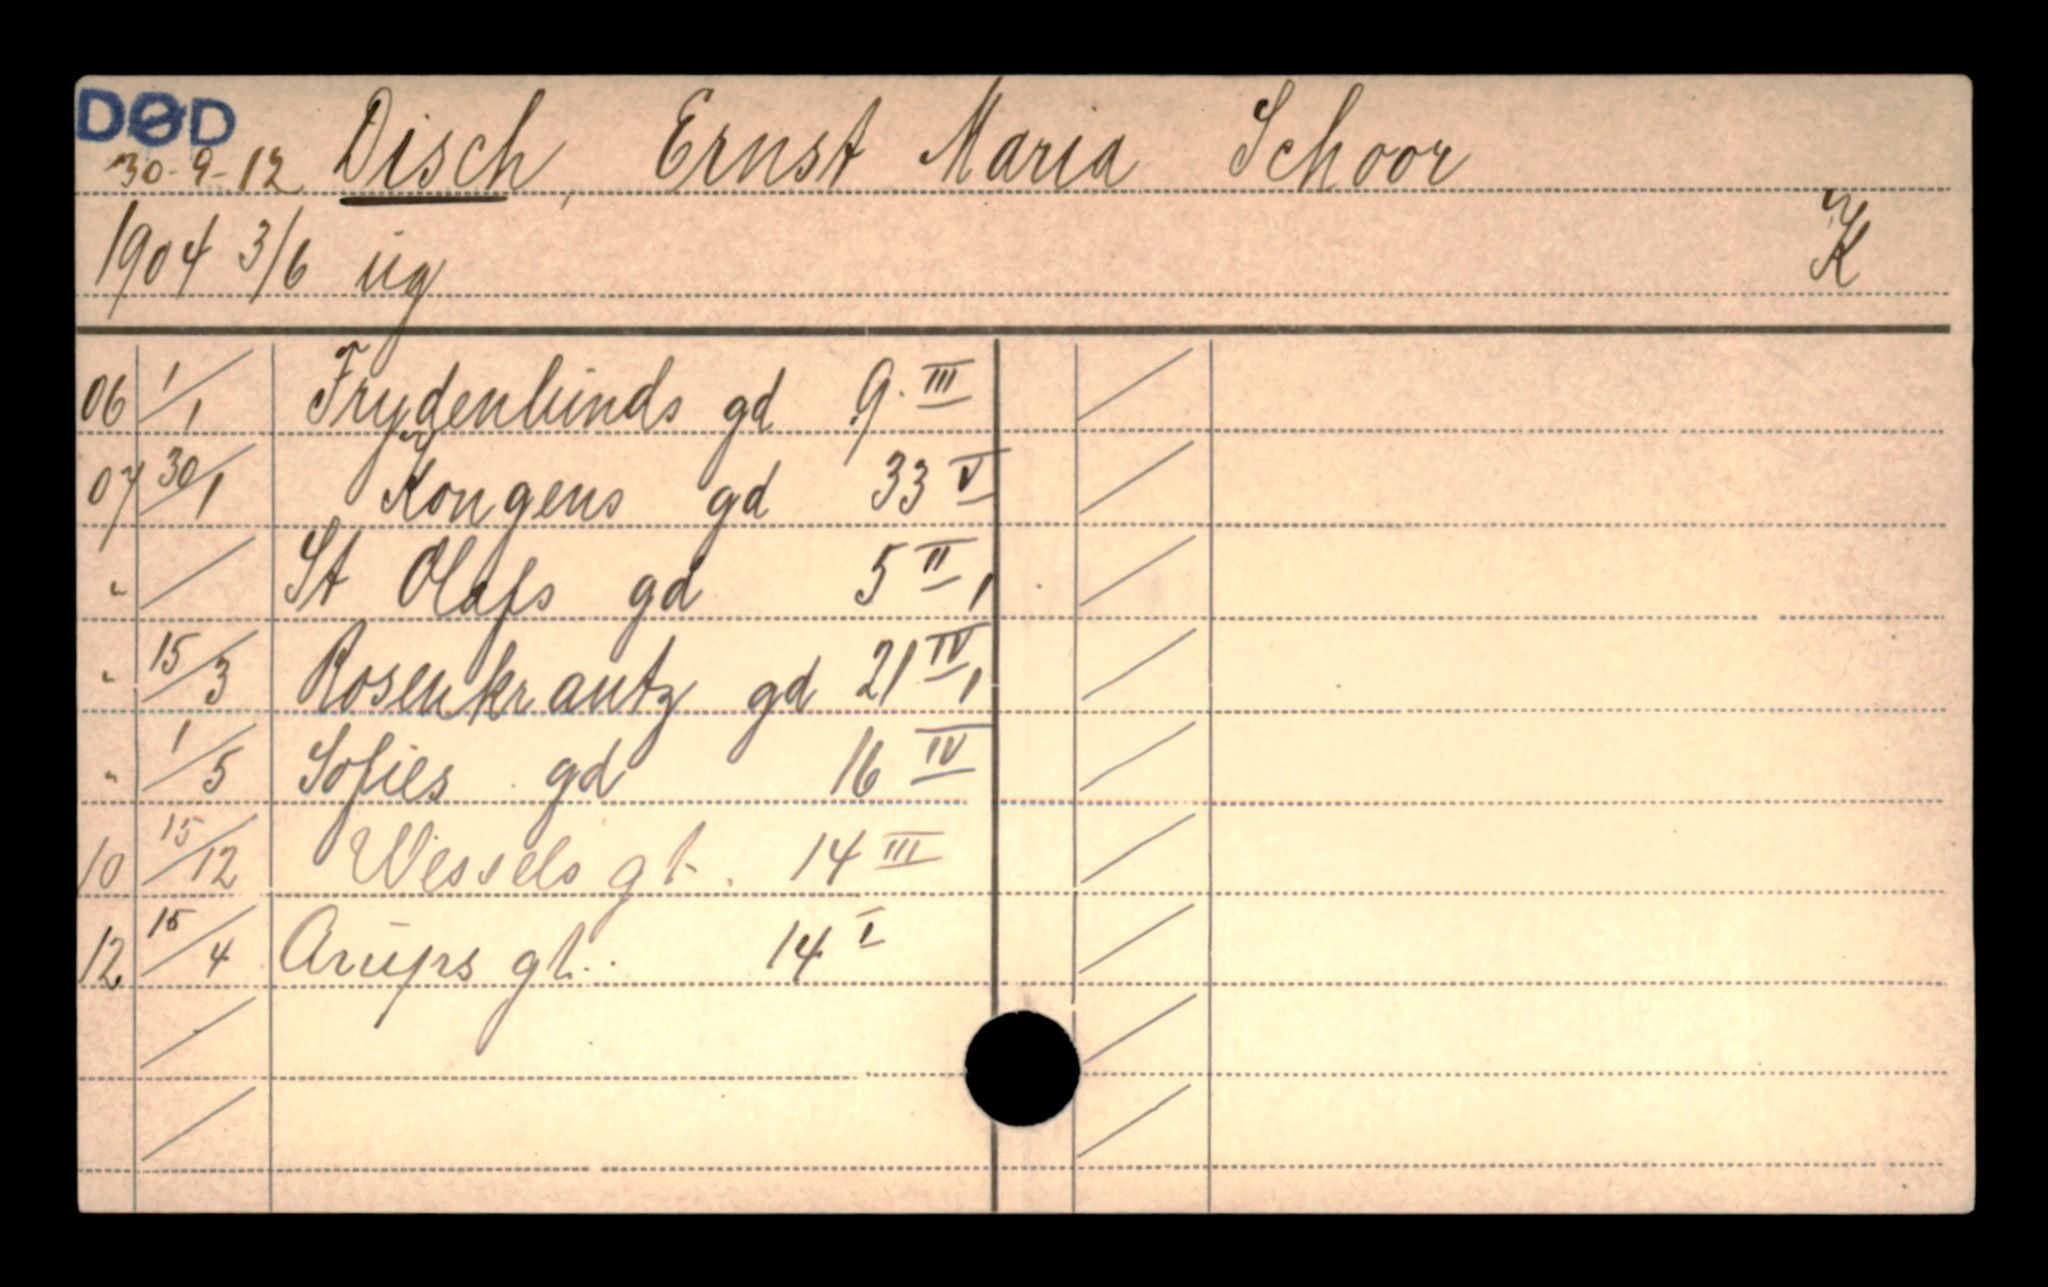 DØD
30-9-12 Disch, Ernst Maria Schoor
1904 3/6 ug K
06 1/1 Frydenlunds gd 9. III
07 30/1 Kongens gd 33 V
" St Olafs gd 5 II
" 15/3 Rosenkrantz gd 21 IV
" 1/5 Sofies gd 16 IV
10 15/12 Wessels gt. 14 III
12 15/4 Arups gt. 14 I